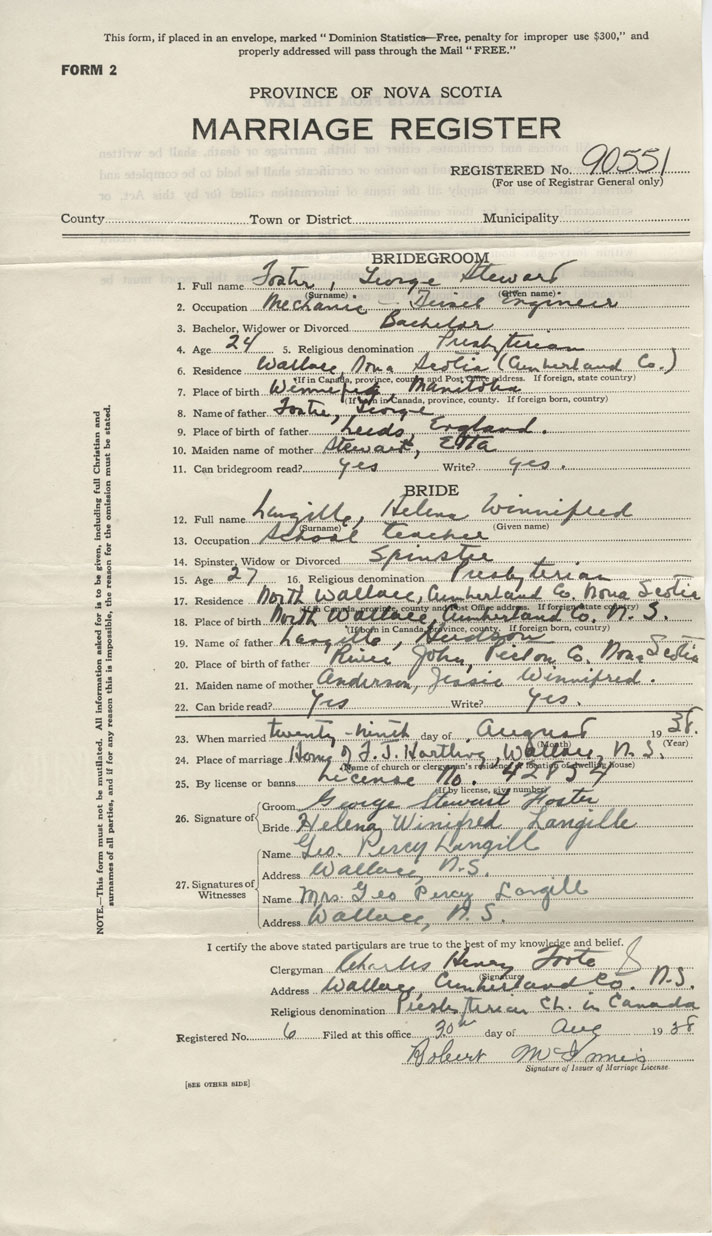 This form, if placed in an envelope, marked "Dominion Statistics—Free, penalty for improper use $300," and
properly addressed will pass through the Mail "FREE."
FORM 2
PROVINCE OF NOVA SCOTIA
MARRIAGE REGISTER
REGISTERED No. 90551
(For use of Registrar General only)
County Town or District Municipality
BRIDEGROOM
1. Full name Foster, George Steward
(Surname) (Given name)
2. Occupation Mechanic - Diesel Engineer
3. Bachelor, Widower or Divorced Bachelor
4. Age 24 5. Religious denomination Presbyterian
6. Residence Wallace, Nova Scotia (Cumberland Co.)
(If in Canada, province, county and Post Office address. If foreign, state country)
7. Place of birth Winnipeg Manitoba
(If born in Canada, province, county. If foreign born, country)
8. Name of father Foster, George
9. Place of father Leeds, England.
10. Maiden name of mother Stewart, Etta
11. Can bridegroom read? yes Write? yes.
BRIDE
12. Full name Langille, Helena Winnifred
(Surname) (Given name)
13. Occupation School teacher
14. Spinster, Widow or Divorced Spinster
15. Age 27 16. Religious denomination Presbyterian
17. Residence North Wallace, Cumberland Co. Nova Scotia
(If in Canada, province, county and Post Office address. If foreign state country)
18. Place of birth North Wallace, Cumberland Co. N. S.
(If born in Canada, province, county. If foreign born, country)
19. Name of father Langille, Hudson
20. Place of birth of father River John, Pictou Co. Nova Scotia
21. Maiden name of mother Anderson, Jessie Winnifred.
22. Can bride read? Yes Write? Yes.
23. When married twenty-ninth day of August 1938.
(Month) (Year)
24. Place of marriage Home of F. J. Hartling, Wallace, N. S.
(Name of church or clergyman's residence, or location of dwelling house)
25. By license or banns License No. 42854
(If by license, give number)
26. Signature of Groom George Stewart Foster
Bride Helena Winifred Langille
27. Signatures of Witnesses
Name Geo. Percy Langill
Address Wallace, N.S.
Name Mrs. Geo Percy Langill
Address Wallace, N. S.
I certify the above stated particulars are true to the best of my knowledge and belief.
Clergyman Charles Henry Foote
(Signature)
Address Wallace, Cumberland Co. N.S.
Religious denomination Presbyterian Ch. in Canada
Registered No. 6 Filed at this office 30th day of Aug 1938
Robert McInnis
Signature of Issuer of Marriage License.
[SEE OTHER SIDE]
NOTE.—This form must not be mutilated. All information asked for is to be given, including full Christian and
surnames of all parties, and if for any reason this is impossible, the reason for the omission must be stated.